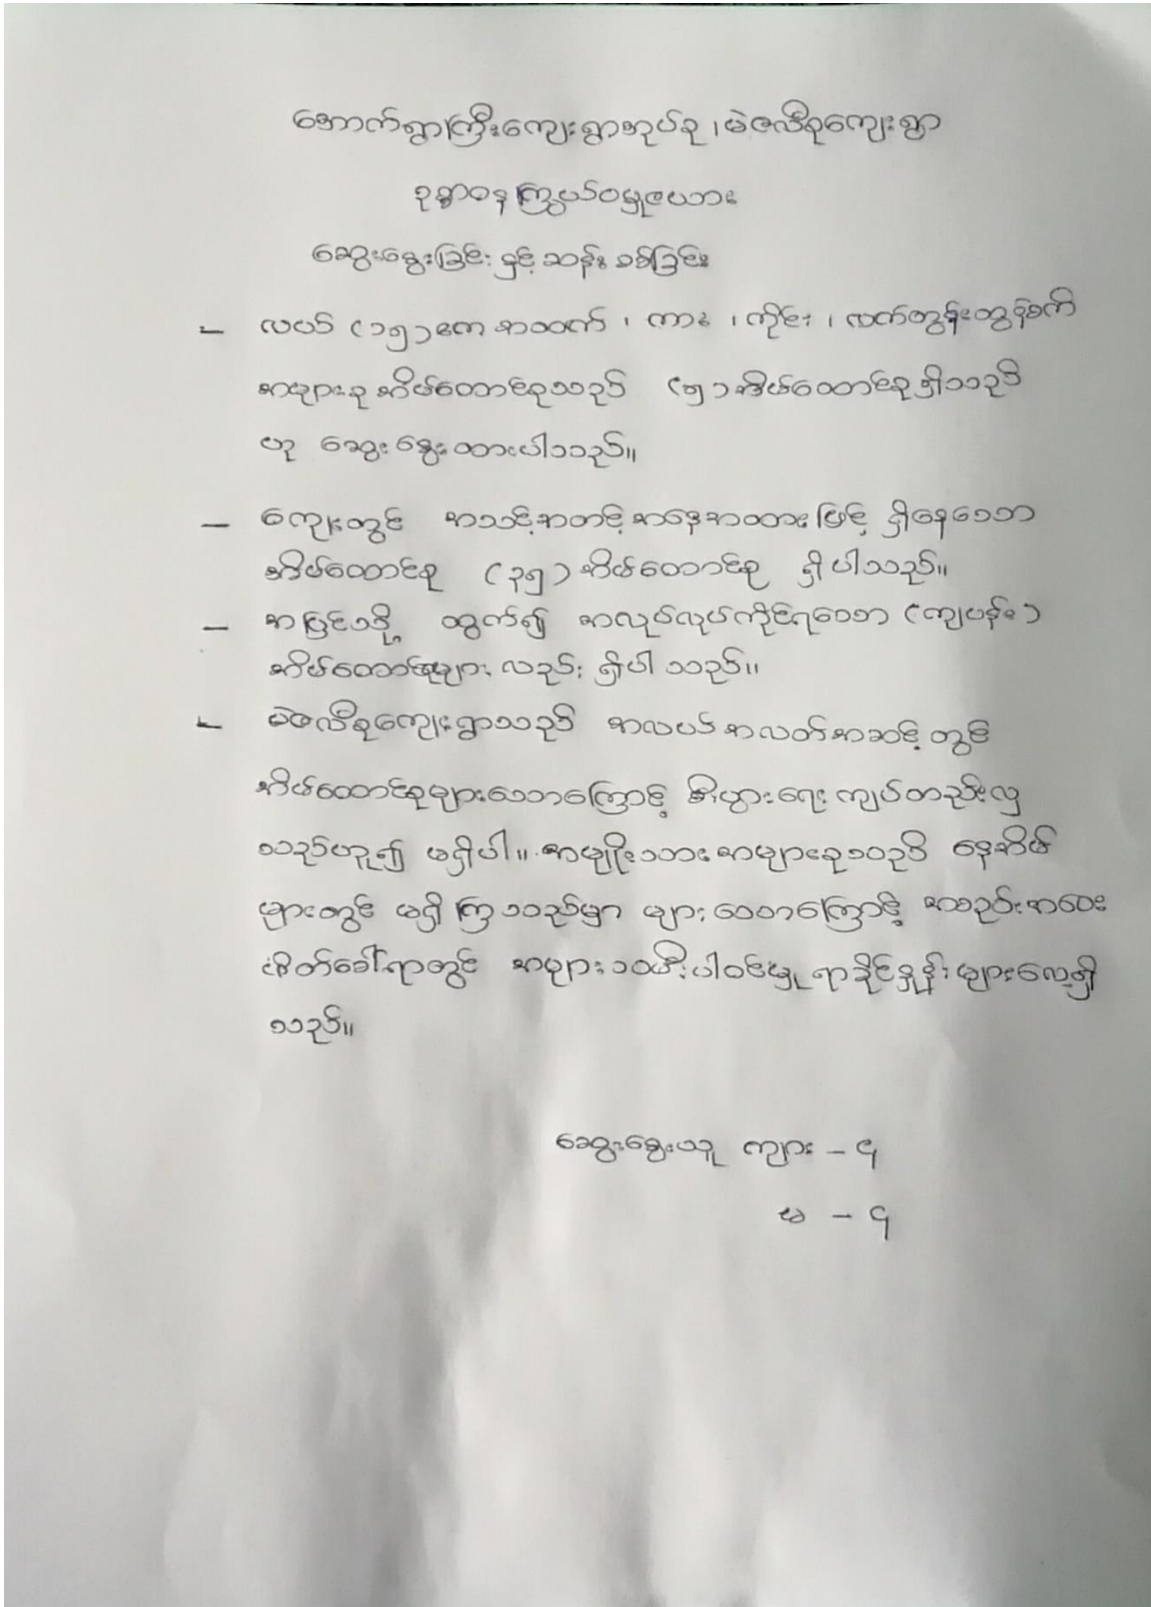 အောက်ရွာကြီးကျေးရွာအုပ်စု ၊ မဲဇလီစုကျေးရွာ
ဥစ္စာဓန ကြွယ်ဝမှုဇယား
ဆွေးနွေးခြင်း နှင့် ဆန်းစစ်ခြင်း
– လယ် (၁၅) ဧက အထက် ၊ ကား ၊ ကိုင်း ၊ လက်တွန်းထွန်စက်
အများစု အိမ်ထောင်စုသည် (၅) အိမ်ထောင်စု ရှိသည်
ဟု ဆွေးနွေးထားပါသည်။
– ကျေးတွင် အသင့်အတင့် အနေအထား ဖြင့် ရှိနေသော
အိမ်ထောင်စု (၃၅) အိမ်ထောင်စု ရှိပါသည်။
– အပြင်သို့ ထွက်၍ အလုပ်လုပ်ကိုင်ရသော (ကျပန်း)
အိမ်ထောင်စုများ လည်း ရှိပါသည်။
– မဲဇလီစုကျေးရွာသည် အလယ်အလတ်အဆင့် တွင်
အိမ်ထောင်စုများသောကြောင့် စီးပွားရေး ကျပ်တည်းလှ
သည်ဟူ၍ မရှိပါ။ အမျိုးသား အများစုသည် နေအိမ်
များတွင် မရှိကြသည်မှာ များသောကြောင့် အစည်းအဝေး
ဖိတ်ခေါ်ရာတွင် အများသမီး ပါဝင်မှု ရာခိုင်နှုန်း များလေ့ရှိ
သည်။
ဆွေးနွေးသူ ကျား – ၄
မ – ၄